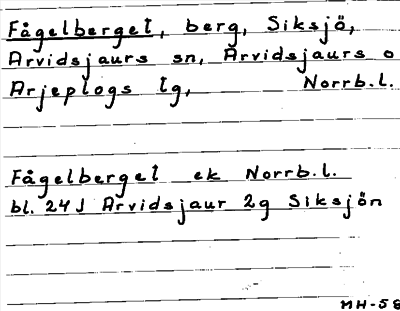 Fågelberget, berg, Siksjö,
Arvidsjaurs sn, Arvidsjaurs o
Arjeplogs tg, Norrb.l.
Fågelberget ek Norrb.l.
bl. 24J Arvidsjaur 2g Siksjön
MH-58